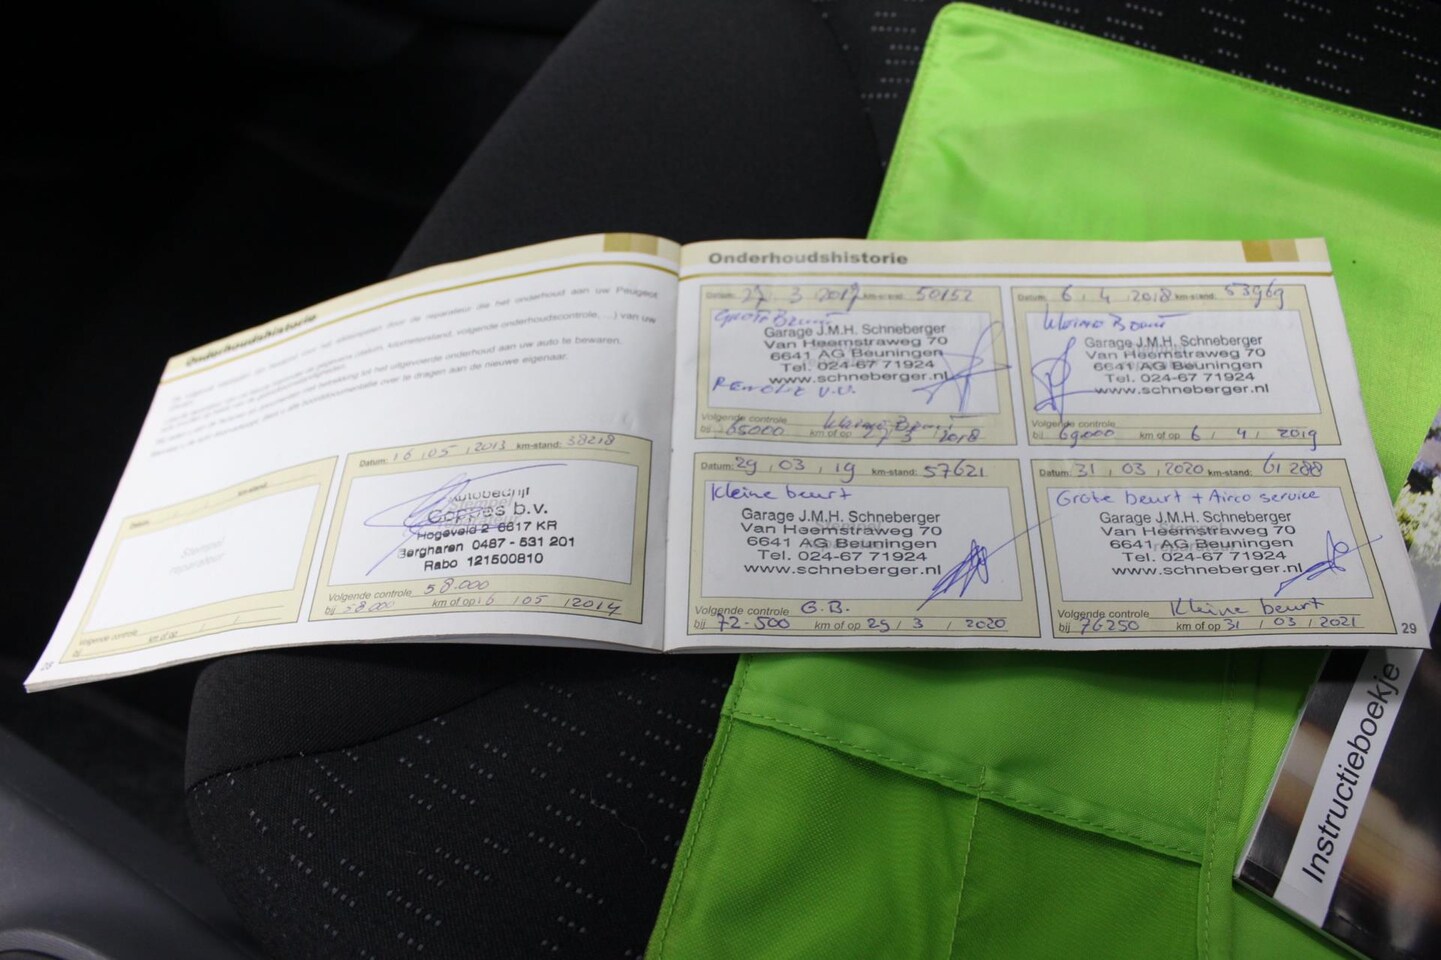 Onderhoudshistorie
het onderhoud aan uw Peugeot
volgende onderhoudscontrole, ...) van uw
onderhoud aan uw auto te bewaren.
over te dragen aan de nieuwe eigenaar.
Datum:
km-stand:
Stempel
reparateur
Volgende controle
bij
km of op
28
Datum: 16 05 2013 km-stand: 38218
Autobedrijf
b.v.
Hogeveld 2 6617 KR
Bergharen 0487 - 531 201
Rabo 121500810
Volgende controle 58.000
bij 58.000 km of op 16 / 05 / 2014
Onderhoudshistorie
Datum: 27 . 3 . 2017 km-stand: 50152
Grote Beurt
Garage J.M.H. Schneberger
Van Heemstraweg 70
6641 AG Beuningen
Tel. 024-67 71924
www.schneberger.nl
Volgende controle Kleine Beurt
bij 65000 km of op 27 / 3 / 2018
Datum: 6 . 4 . 2018 km-stand: 53969
Kleine Beurt
Garage J.M.H. Schneberger
Van Heemstraweg 70
6641 AG Beuningen
Tel. 024-67 71924
www.schneberger.nl
Volgende controle
bij 69000 km of op 6 / 4 / 2019
Datum: 29 . 03 . 19 km-stand: 57621
Kleine beurt
Garage J.M.H. Schneberger
Van Heemstraweg 70
6641 AG Beuningen
Tel. 024-67 71924
www.schneberger.nl
Volgende controle G.B.
bij 72-500 km of op 29 / 3 / 2020
Datum: 31 . 03 . 2020 km-stand: 61288
Grote beurt + Airco service
Garage J.M.H. Schneberger
Van Heemstraweg 70
6641 AG Beuningen
Tel. 024-67 71924
www.schneberger.nl
Volgende controle Kleine beurt
bij 76250 km of op 31 / 03 / 2021
29
Instructieboekje